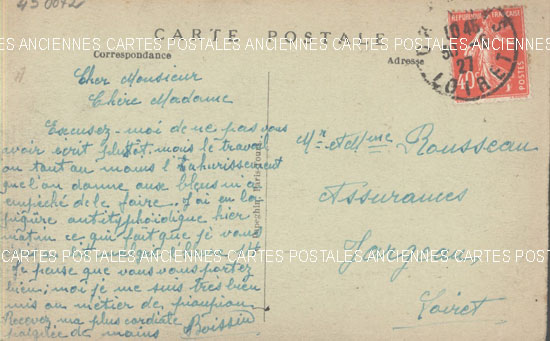 450042
CARTE POSTALE
Correspondance
Adresse
ANCIENNES CARTES POSTALES ANCIENNES CARTES POSTALES ANCIENNES CARTES POSTALES
REPUBLIQUE FRANCAISE
POSTES
40c
10 45
27
LOIRET
Cher Monsieur
Chère Madame
Excusez-moi de ne pas vous
avoir écrit plutôt mais le travail
ou tant au moins l'Enhurissement
que l'on donne aux bleus m'a
empêché de le faire. J'ai eu la
piqûre antityphoïdique hier
matin ce qui fait que je vous
Je pense que vous vous portez
bien; moi je me suis très bien
mis au métier de pioupiou.
Recevez ma plus cordiale
poignée de mains Boissin
Mr et Mme Rousseau
Assurances
Jargeau
Loiret
ANCIENNES CARTES POSTALES ANCIENNES CARTES POSTALES ANCIENNES CARTES POSTALES